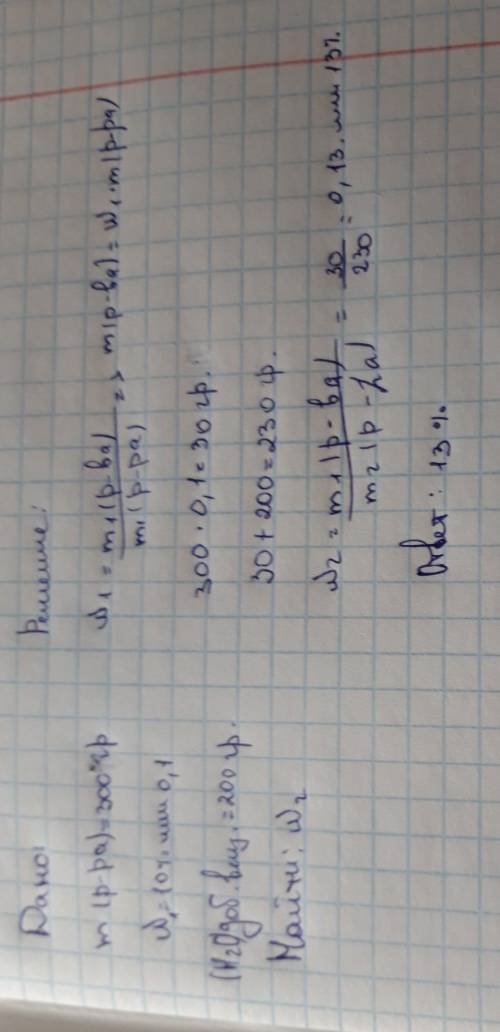 Дано:
m (р-ра)=300 гр
W₁=10% или 0,1
(H₂O)доб. вещ.=200 гр.
Найти: W₂
Решение:
W₁ = m₁(р-ва)/m₁(р-ра) => m(р-ва)=W₁·m(р-ра)
300·0,1=30 гр.
30+200=230 гр.
W₂ = m₁(р-ва)/m₂(р-ра) = 30/230 = 0,13. или 13%.
Ответ: 13%